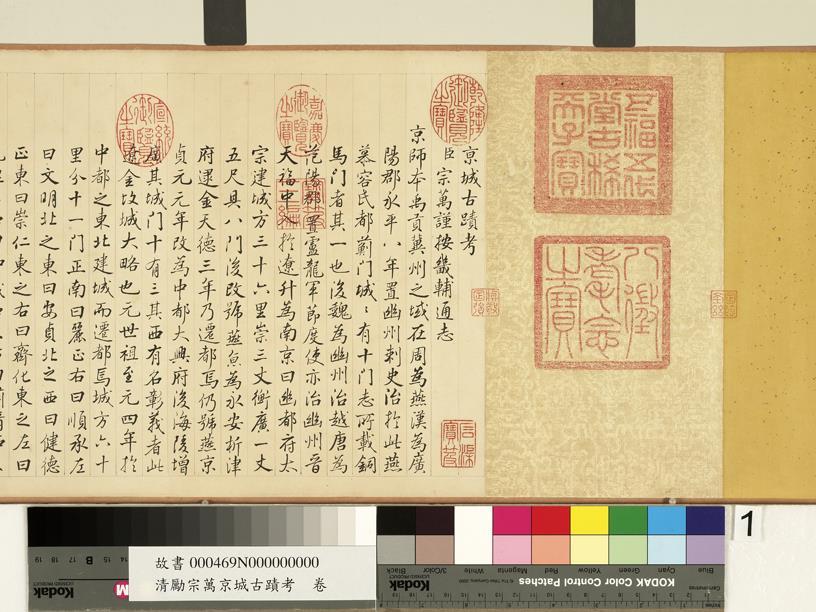 五福五代堂古稀天子寶
八徵耄念之寶
乾隆御覽之寶
京城古蹟考
臣宗萬謹按畿輔通志
京師本禹貢冀州之域在周為燕漢為廣
陽郡永平八年置幽州刺史治於此燕
慕容氏都薊門城〻有十門志所載銅
馬門者其一也後魏為幽州治越唐為
范陽郡置盧龍軍節度使亦治幽州晉
嘉慶御覽之寶
天福中入於遼升為南京曰幽都府太
宗建城方三十六里崇三丈衡廣一丈
五尺具八門後改號燕京為永安析津
府遝金天德三年乃遷都焉仍號燕京
貞元元年改為中都大興府後海陵增
廣其城門十有三其西有名彰義者此
宣統御覽之寶
遼金故城大略也元世祖至元四年於
中都之東北建城而遷都焉城方六十
里分十一門正南曰麗正右曰順承左
曰文明北之東曰安貞北之西曰健德
正東曰崇仁東之右曰齊化東之左曰
1
故書 000469N000000000
清勵宗萬京城古蹟考 卷
Kodak
KODAK Color Control Patches
Blue Cyan Green Yellow Red Magenta White 3/Color Black